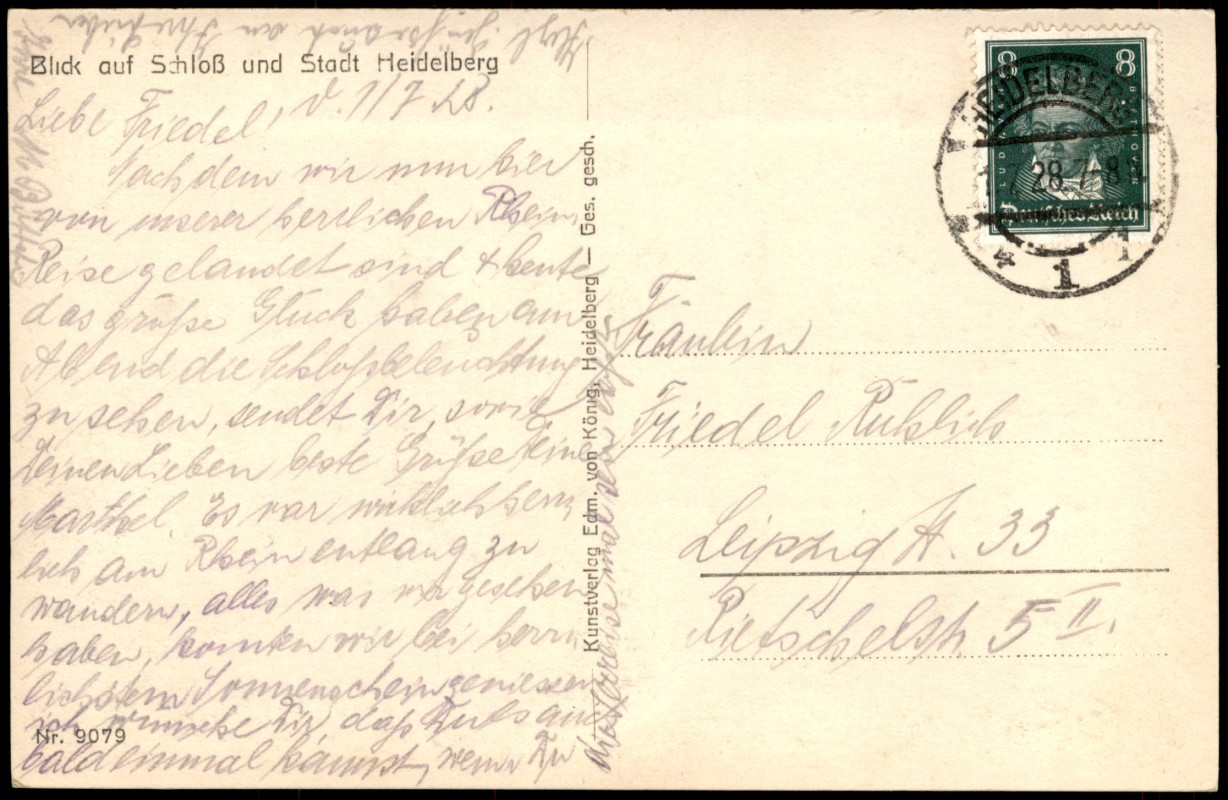 Blick auf Schloß und Stadt Heidelberg
d. 1/7 28.
Liebe Friedel!
Nachdem wir nun hier
von unserer herrlichen Rhein-
Reise gelandet sind & heute
das große Glück haben am
Abend die Schloßbeleuchtung
zu sehen, sendet Dir, sowie
Deinen Lieben beste Grüße
Es war wirklich herr-
lich am Rhein entlang zu
wandern, alles was wir gesehen
haben, konnten wir bei herr-
lichstem Sonnenschein geniessen
ich wünsche Dir, daß Du es auch
bald einmal kannst, wenn Du
Nr. 9079
Kunstverlag Edm. von König, Heidelberg — Ges. gesch.
8 8
LUDWIG VAN BEETHOVEN
Deutsches Reich
HEIDELBERG
28.7.
* 1
Fräulein
Friedel
Leipzig A. 33
Rietschelstr. 5 II.